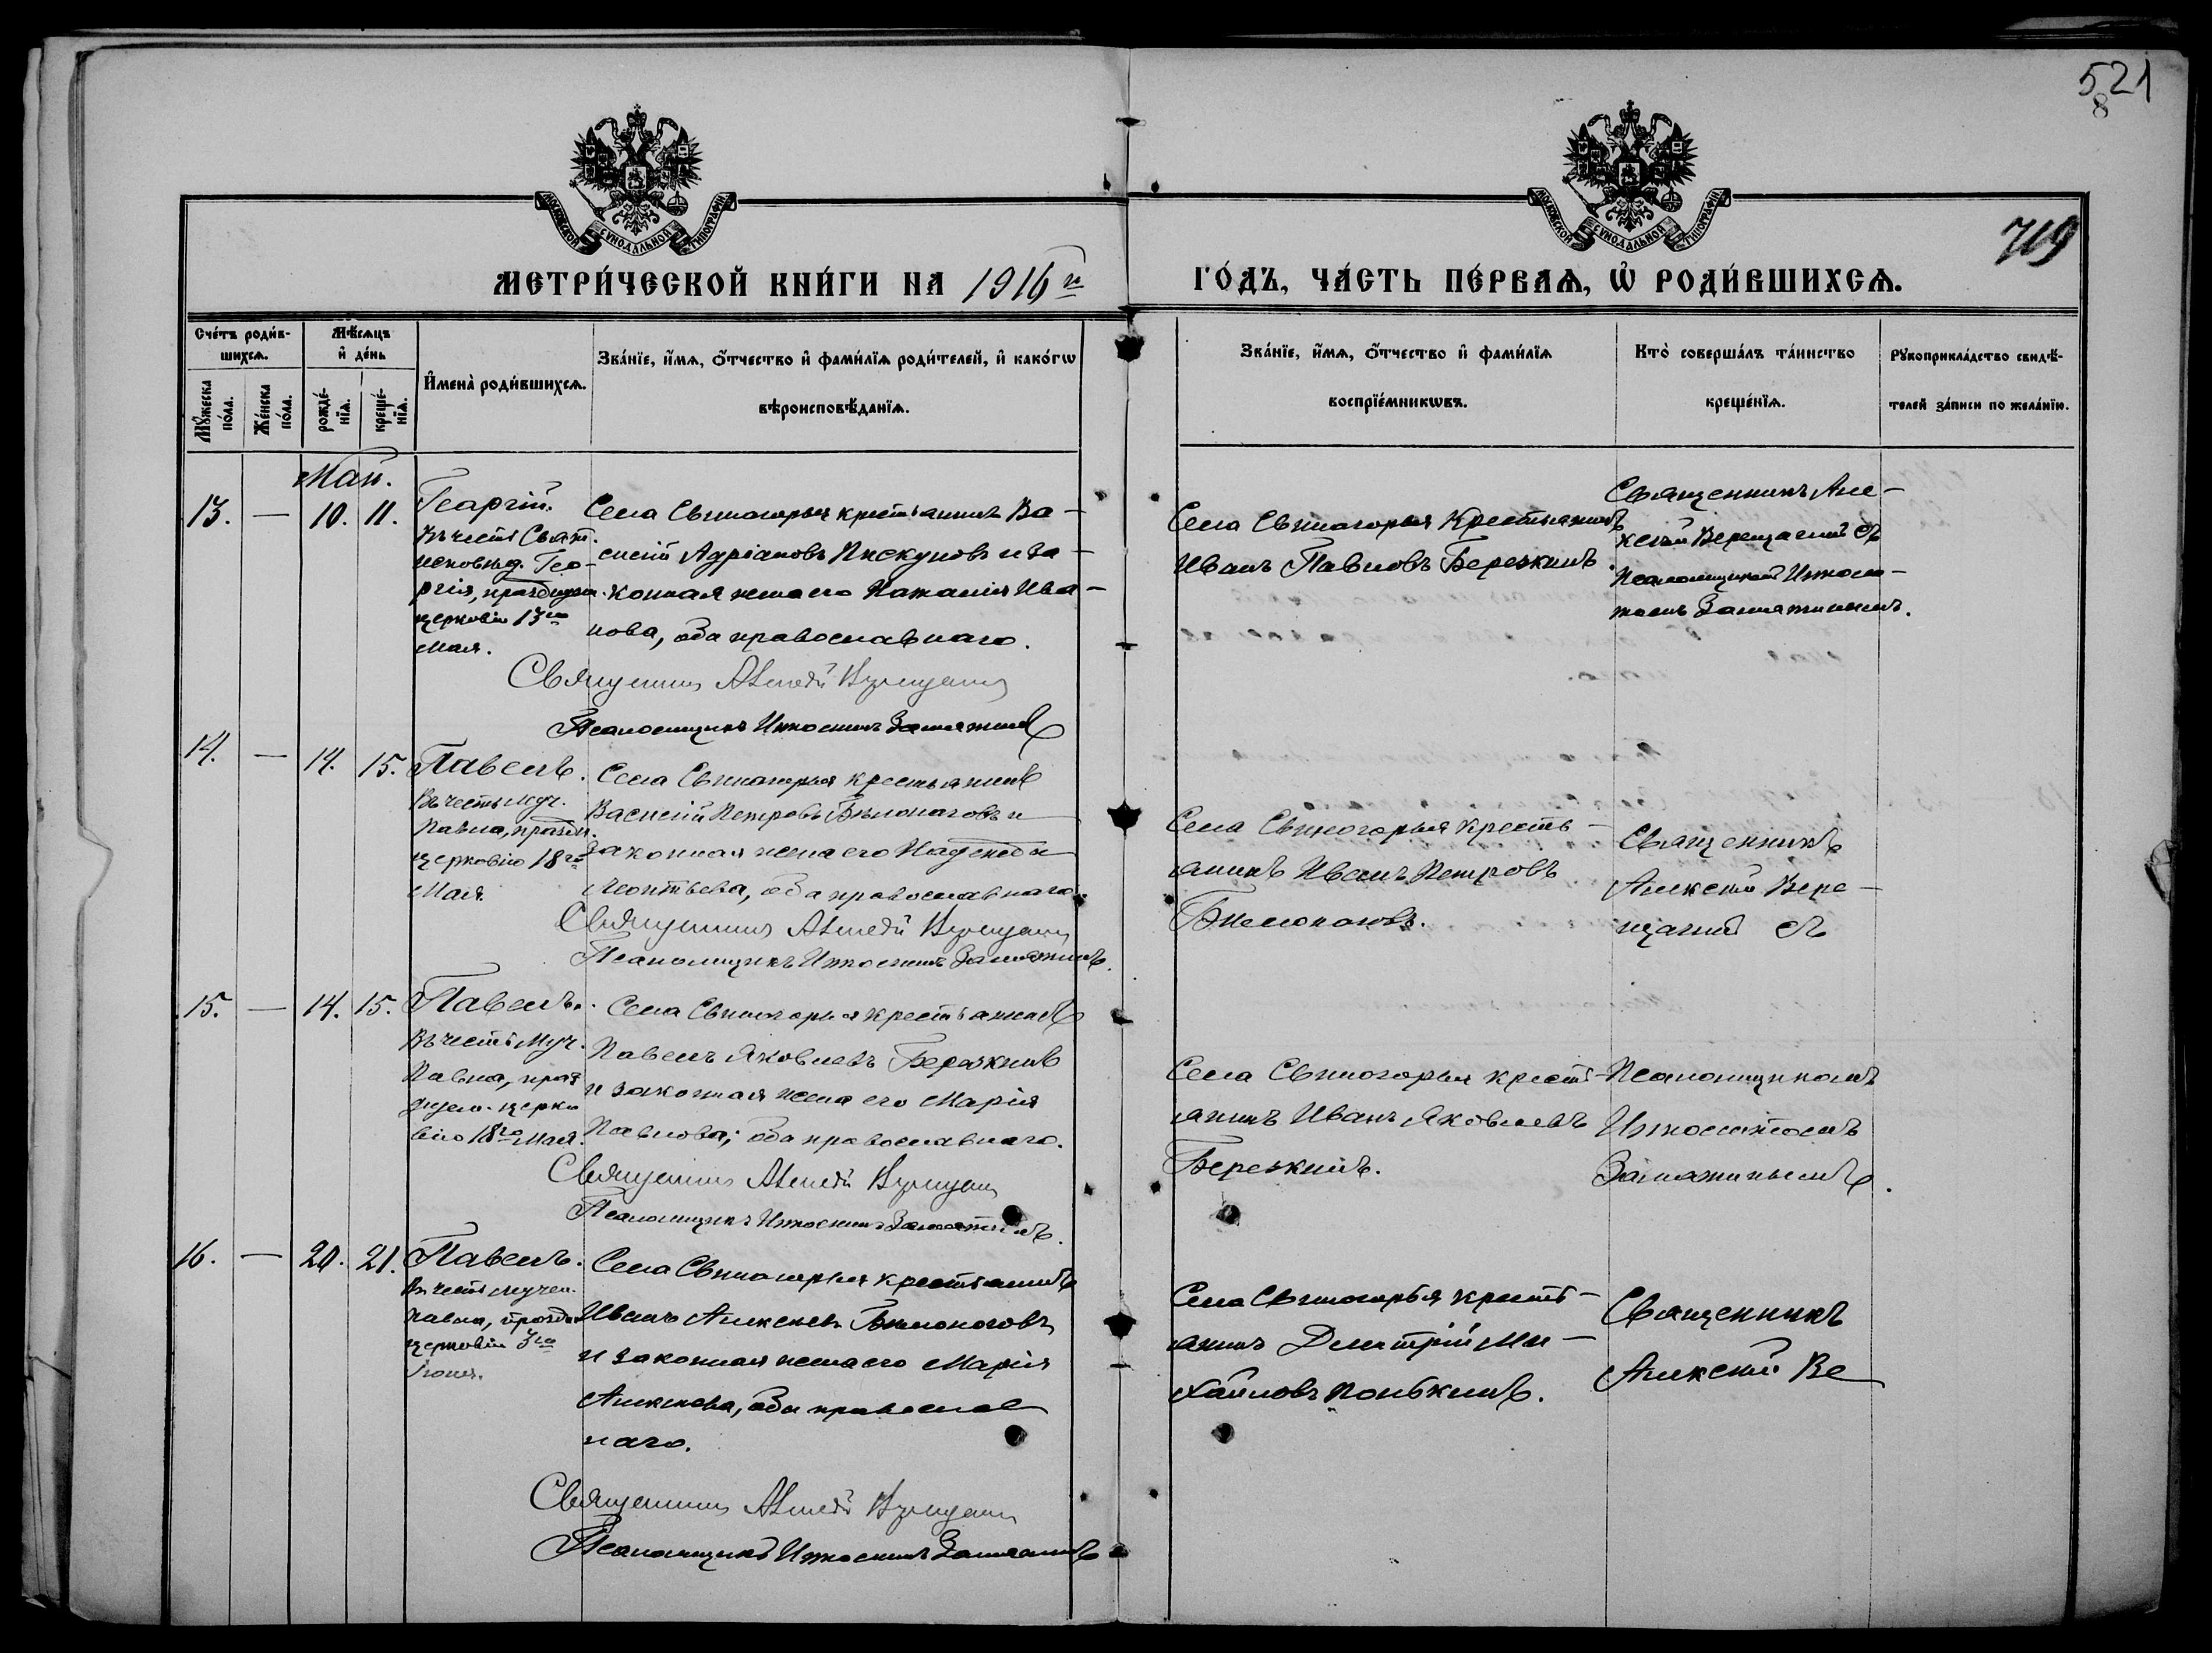 521
8
МОСКОВСКОЙ СѴНОДАЛЬНОЙ ТИПОГРАФІИ
МОСКОВСКОЙ СѴНОДАЛЬНОЙ ТИПОГРАФІИ
719
МЕТРИ́ЧЕСКОЙ КНИ́ГИ НА 1916й
ГО́ДЪ, ЧА́СТЬ ПЕ́РВАѦ, Ѡ҆ РОДИ́ВШИХСѦ.
Сче́тъ роди́в-
шихсѧ.
Мѣ́сѧцъ
и҆ де́нь
Мꙋ́жеска
по́ла.
Же́нска
по́ла.
рожде́-
нїѧ.
креще́-
нїѧ.
И҆мена̀ роди́вшихсѧ.
Зва́нїе, и҆́мѧ, ѻ҆́тчество и҆ фами́лїѧ роди́телей, и҆ како́гѡ
вѣроисповѣ́данїѧ.
Зва́нїе, и҆́мѧ, ѻ҆́тчество и҆ фами́лїѧ
воспрїе́мникѡвъ.
Кто̀ соверша́лъ та́инство
креще́нїѧ.
Рꙋкоприкла́дство свидѣ́-
телей за́писи по жела́нїю.
Май.
13. — 10. 11.
Георгій.
Въ честь Свят.
исповѣд. Гео-
ргія, празднуем.
церковію 13го
Мая.
Села Свиногорья крестьянинъ Ва-
силій Адріановъ Пискуновъ и за-
конная жена его Наталія Ива-
нова, оба православнаго.
Священникъ Алексѣй Верещагинъ
Псаломщикъ Замятинъ
Села Свиногорья Крестьянинъ
Иванъ Павловъ Березкинъ.
Священникъ Але-
ксѣй Верещагинъ съ
Псаломщикомъ
Замятинымъ.
14. — 14. 15.
Павелъ.
Въ честь муч.
Павла, праздн.
церковію 18го
Мая
Села Свиногорья крестьянинъ
Василій Петровъ Бѣлоноговъ и
законная жена его Надежда
Леонтьева, оба православнаго.
Священникъ Алексѣй Верещагинъ
Псаломщикъ Замятинъ.
Села Свиногорья кресть-
янинъ Иванъ Петровъ
Бѣлоноговъ.
Священникъ
Алексѣй Вере-
щагинъ съ
15. — 14. 15.
Павелъ.
Въ честь Муч.
Павла, праз
днуем. церко
вію 18го Мая.
Села Свиногорья крестьянинъ
Павелъ Яковлевъ Березкинъ
и законная жена его Марія
Павлова; оба православнаго.
Священникъ Алексѣй Верещагинъ
Псаломщикъ Замятинъ.
Села Свиногорья кресть-
янинъ Иванъ Яковлевъ
Березкинъ.
Псаломщикомъ
Замятинымъ.
16. — 20. 21.
Павелъ.
Въ честь мучен.
Павла, праздн
церковію 3го
Іюня.
Села Свиногорья крестьянинъ
Иванъ Алексѣевъ Бѣлоноговъ
и законная жена его Марія
Алексѣева, оба православ
наго.
Священникъ Алексѣй Верещагинъ
Псаломщикъ Замятинъ
Села Свиногорья кресть-
янинъ Димитрій Ми-
хайловъ
Священникъ
Алексѣй Ве